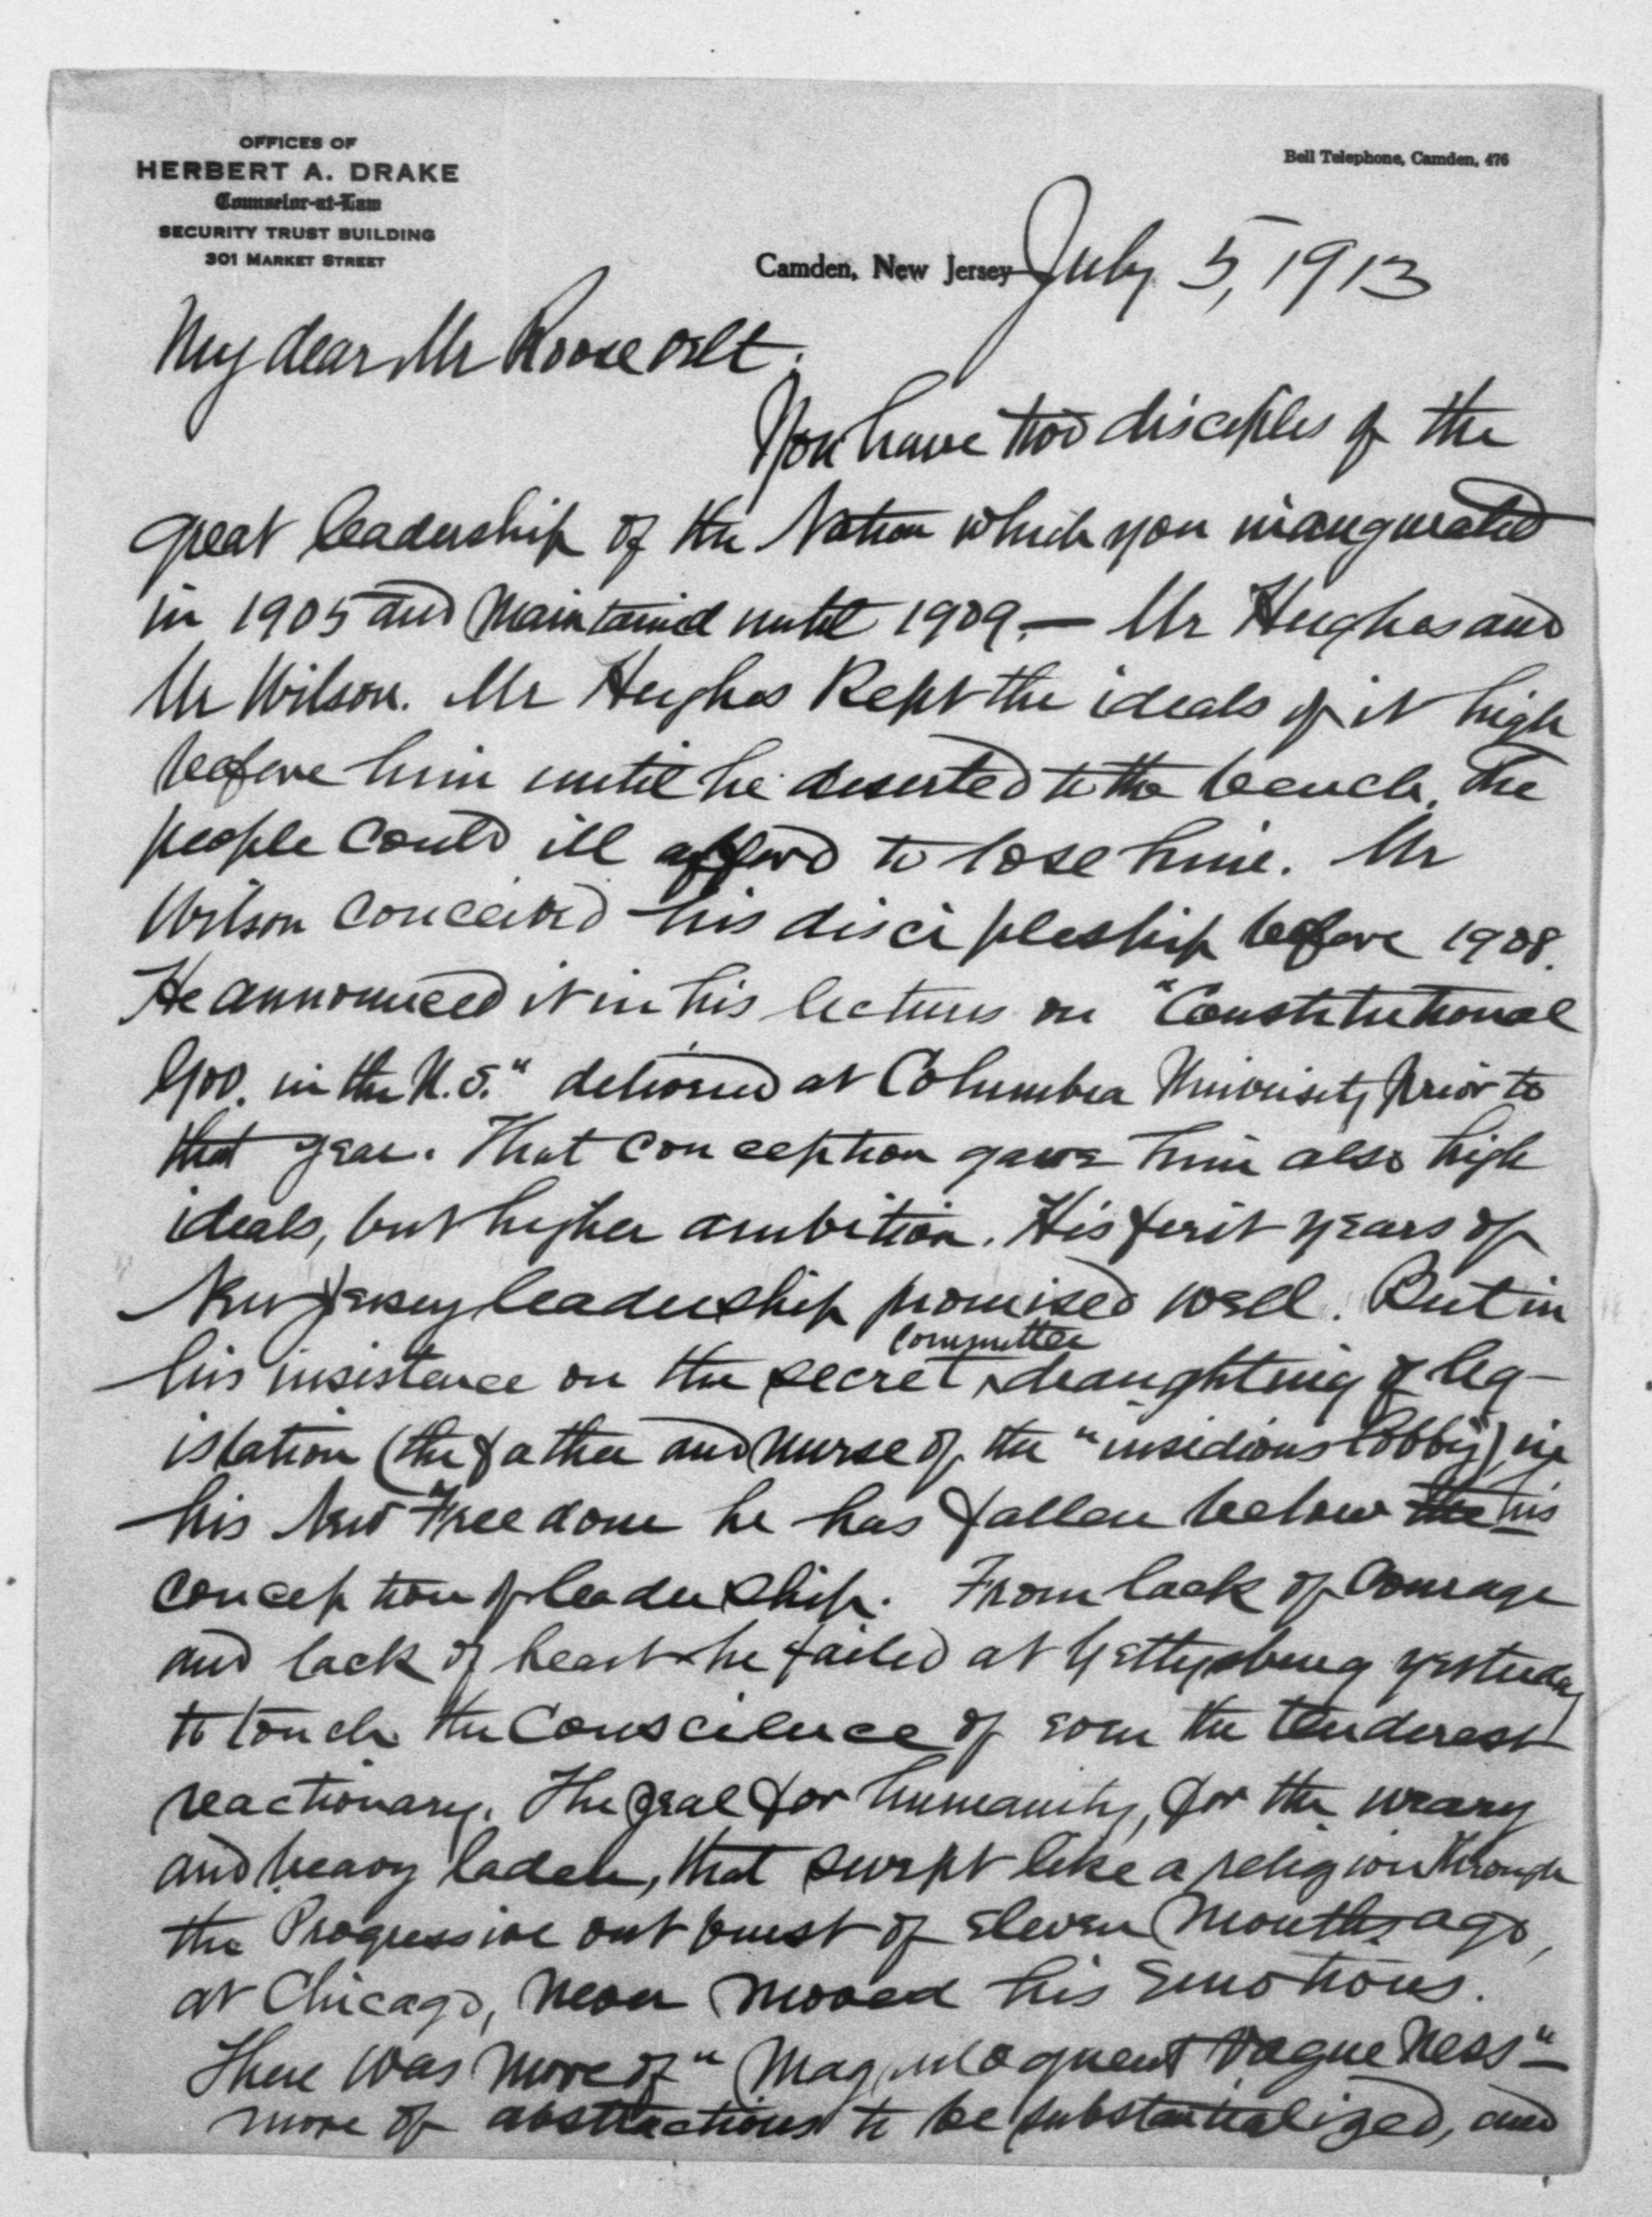 OFFICES OF
HERBERT A. DRAKE
Counselor-at-Law
SECURITY TRUST BUILDING
301 MARKET STREET
Bell Telephone, Camden, 476
Camden, New Jersey July 5, 1913
My dear Mr Roosevelt:
You have two disciples of the
great leadership of the Nation which you inaugurated
in 1905 and maintained until 1909. — Mr Hughes and
Mr Wilson. Mr Hughes kept the ideals of it high
before him until he deserted to the bench. The
people could ill afford to lose him. Mr
Wilson conceived his discipleship before 1908.
He announced it in his lectures on "Constitutional
Gov. in the U.S." delivered at Columbia University prior to
that year. That conception gave him also high
ideals, but higher ambition. His first years of
New Jersey leadership promised well. But in
committee
his insistence on the secret draughting of leg-
islation (the father and nurse of the "insidious lobby"), in
his New Freedom he has fallen below the his
conception of leadership. From lack of courage
and lack of heart he failed at Gettysburg yesterday
to touch the conscience of even the tenderest
reactionary. The zeal for humanity, for the weary
and heavy laden, that swept like a religion through
the Progressive outburst of eleven months ago,
at Chicago, never moved his emotions.
There was more of "magniloquent vagueness" –
more of abstractions to be substantialized, and